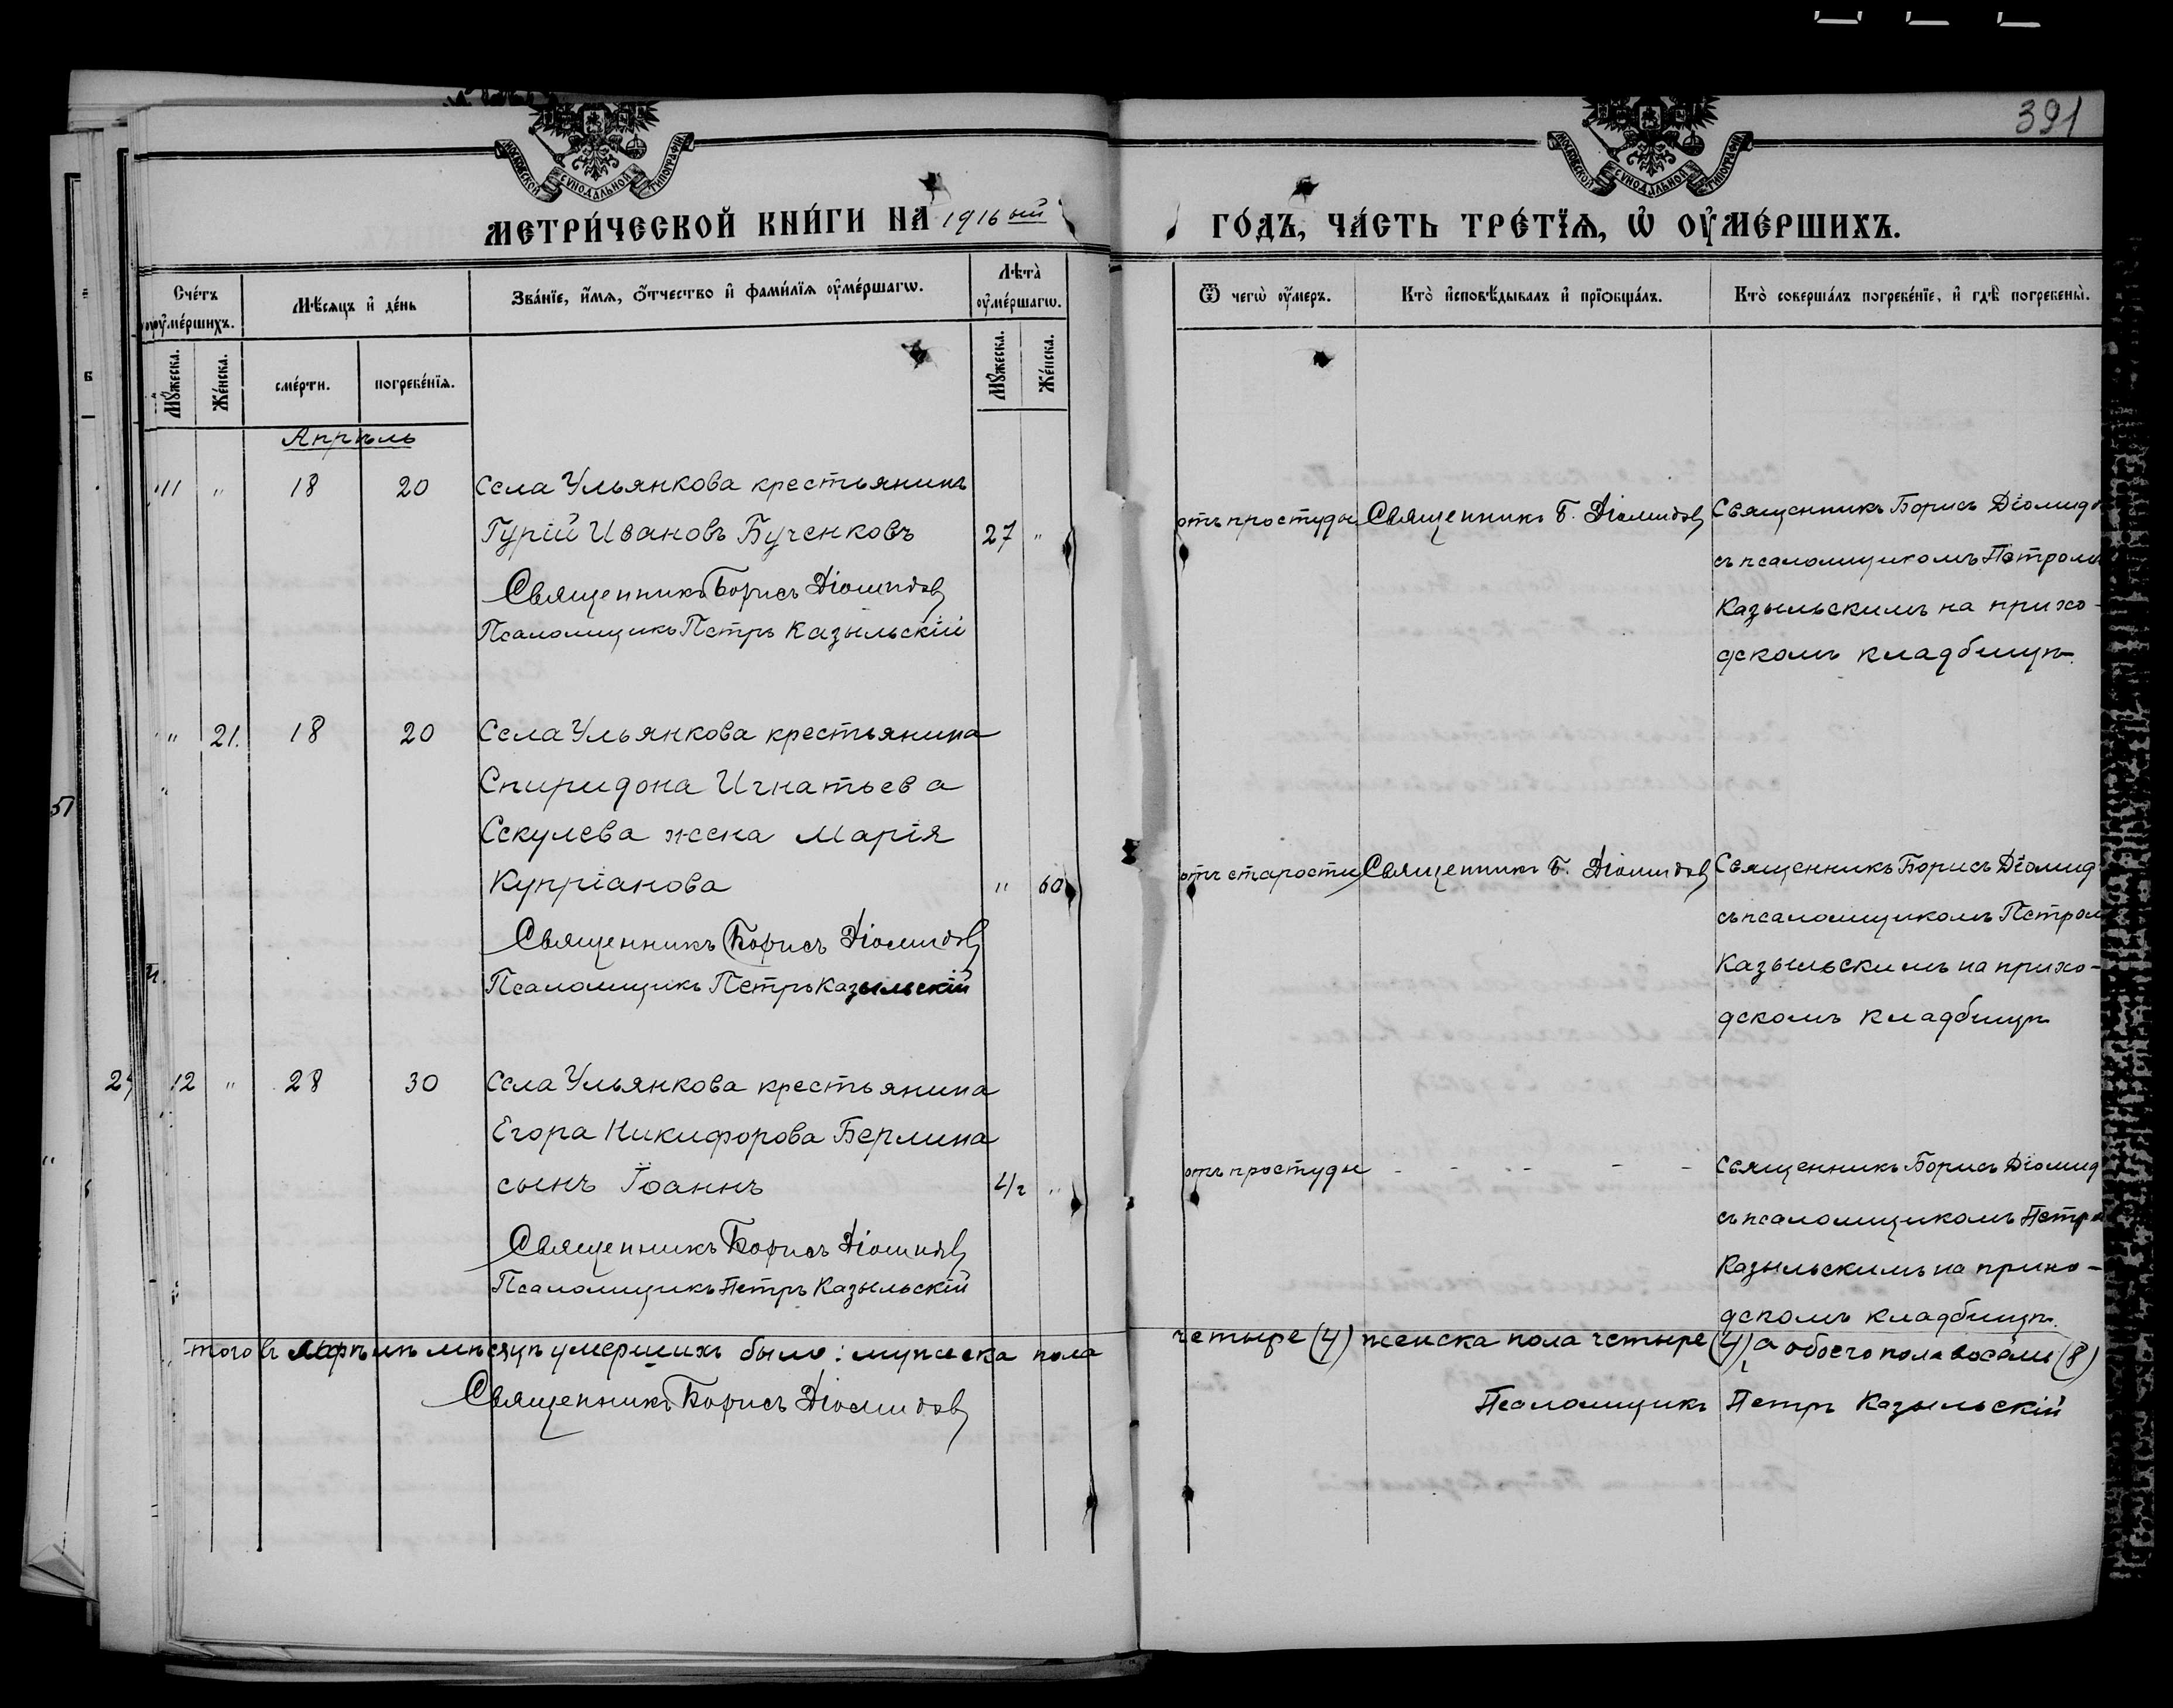 391
МОСКОВСКОЙ СѴНОДАЛЬНОЙ ТИПОГРАФІИ
МОСКОВСКОЙ СѴНОДАЛЬНОЙ ТИПОГРАФІИ
МЕТРИ́ЧЕСКОЙ КНИ́ГИ НА̀ 1916 ый
ГО́ДЪ, ЧА́СТЬ ТРЕ́ТЇѦ, Ѡ҆ ОУ҆МЕ́РШИХЪ.
Сче́тъ оу҆ме́ршихъ.
Мѣ́сяцъ и҆ де́нь
Зва́нїе, и҆́мѧ, ѻ҆́тчество и҆ фами́лїѧ оу҆ме́ршагѡ.
Лѣ́та оу҆ме́ршагѡ.
Ѿ чегѡ̀ оу҆́меръ.
Кто̀ и҆сповѣ́дывалъ и҆ прїѡбща́лъ.
Кто̀ соверша́лъ погребе́нїе, и҆ гдѣ̀ погребены̀.
Мꙋ́жеска. Же́нска. сме́рти. погребе́нїѧ. Мꙋ́жеска. Же́нска.
Апрѣль
11 " 18 20 Села Ульянкова крестьянинъ
Гурій Ивановъ Бученковъ 27 "
Священникъ Борисъ Діомидовъ
Псаломщикъ Петръ Казыльскій
отъ простуды Священникъ Б. Діомидовъ Священникъ Борисъ Діомидо
съ псаломщикомъ Петромъ
Казыльскимъ на прихо-
дскомъ кладбищѣ.
" 21. 18 20 Села Ульянкова крестьянина
Спиридона Игнатьева
Секулева жена Марія
Купріанова " 60
Священникъ Борисъ Діомидовъ
Псаломщикъ Петръ Казыльскій
отъ старости Священникъ Б. Діомидовъ Священникъ Борисъ Діомид
съ псаломщикомъ Петром
Казыльскимъ на прихо-
дскомъ кладбищѣ
12 " 28 30 Села Ульянкова крестьянина
Егора Никифорова Берлина
сынъ Іоаннъ "
Священникъ Борисъ Діомидовъ
Псаломщикъ Петръ Казыльскій
отъ простуды - - - - - Священникъ Борисъ Діомид
съ псаломщикомъ Петро
Казыльскимъ на прихо-
дскомъ кладбищѣ.
того въ Апрѣлѣ мѣсяцѣ умершихъ было: мужеска пола четыре (4) женска пола четыре (4), а обоего пола восемь (8)
Священникъ Борисъ Діомидовъ
Псаломщикъ Петръ Казыльскій